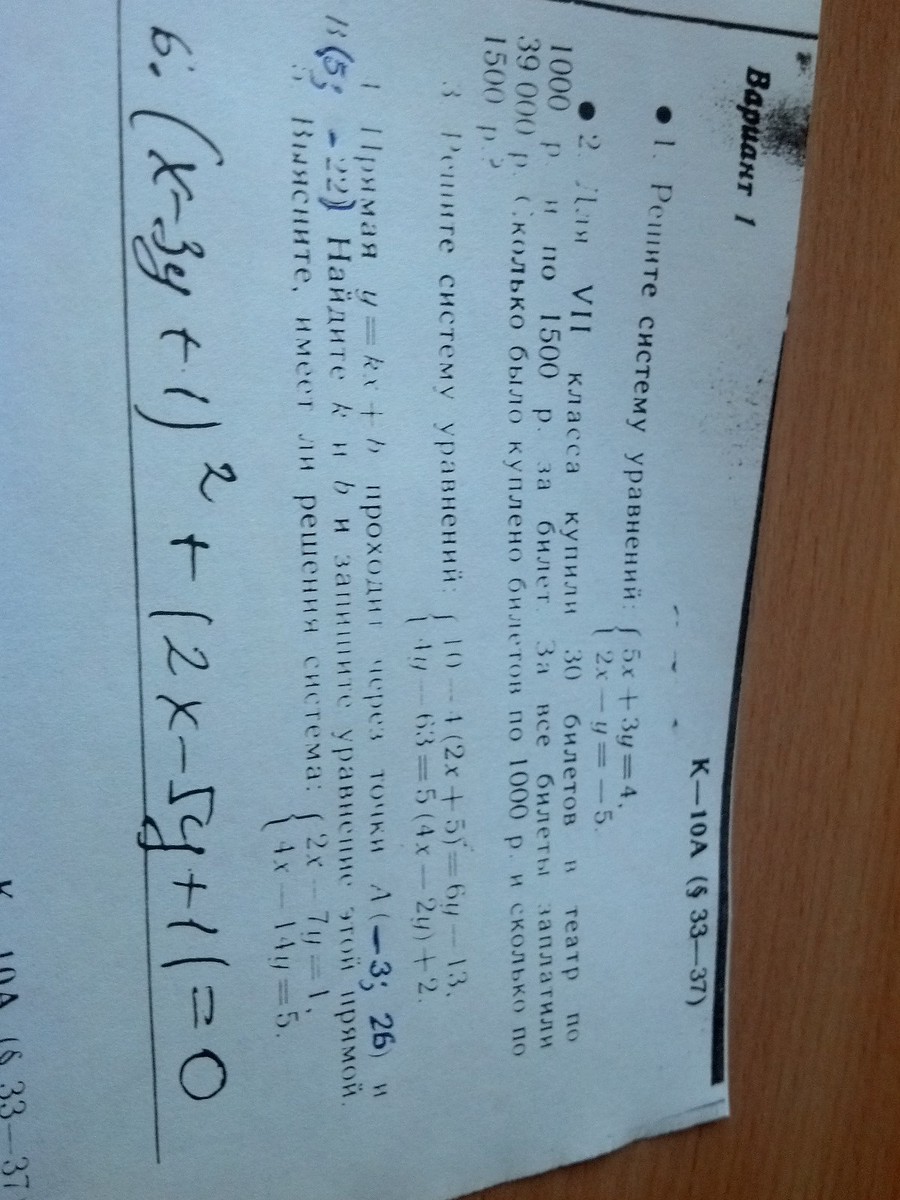 Вариант 1
К—10А (§ 33—37)
● 1. Решите систему уравнений: { 5x + 3y = 4,
2x — y = — 5.
● 2. Для VII класса купили 30 билетов в театр по
1000 р. и по 1500 р. за билет. За все билеты заплатили
39 000 р. Сколько было куплено билетов по 1000 р. и сколько по
1500 р.?
3 Решите систему уравнений: { 10 — 4(2x + 5) = 6y — 13,
4y — 63 = 5(4x — 2y) + 2.
Прямая y = kx + b проходит через точки A (—3; 26) и
B(5; -22) Найдите k и b и запишите уравнение этой прямой.
Выясните, имеет ли решения система: { 2x — 7y = 1,
4x — 14y = 5.
6. (x-3y+1)² + (2x-5y+1(=0
10А (§ 33—37